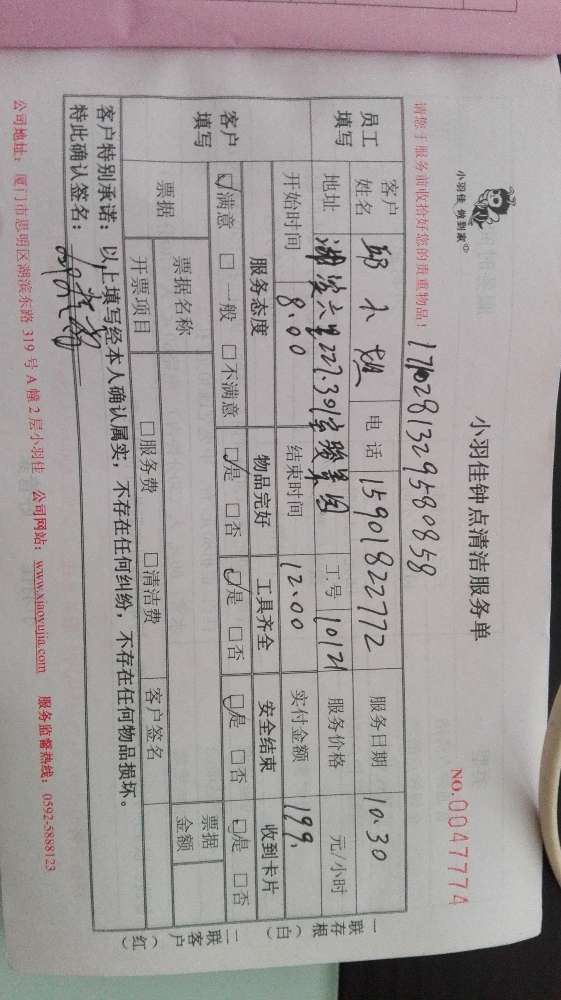 小羽佳 做到家
小羽佳钟点清洁服务单
NO.0047774
请您于服务前收拾好您的贵重物品!
员工填写 客户姓名 邱小姐 电话 15901822772 服务日期 10.30
地址 湖滨六里227.301 工号 10121 服务价格 元/小时
开始时间 8.00 结束时间 12.00 实付金额 199.
客户填写 服务态度 物品完好 工具齐全 安全结束 收到卡片
☑满意 □一般 □不满意 ☑是 □否 ☑是 □否 ☑是 □否 ☑是 □否
票据 票据名称 □服务费 □清洁费 票据金额
开票项目 客户签名
客户特别承诺:以上填写经本人确认属实,不存在任何纠纷,不存在任何物品损坏。
特此确认签名:
公司地址:厦门市思明区湖滨东路 319 号 A 幢 2 层小羽佳 公司网站:www.xiaoyujia.com 服务监督热线:0592-5888123
一联存根(白)
二联客户(红)